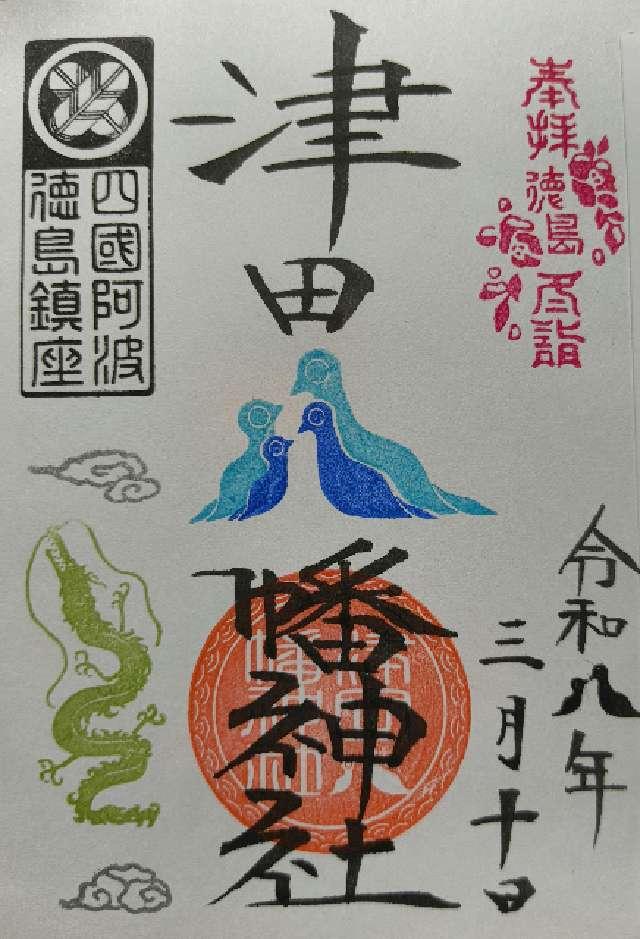 奉拝 徳島 参詣
令和八年
三月十日
津田
幡神社
四國阿波
徳島鎮座